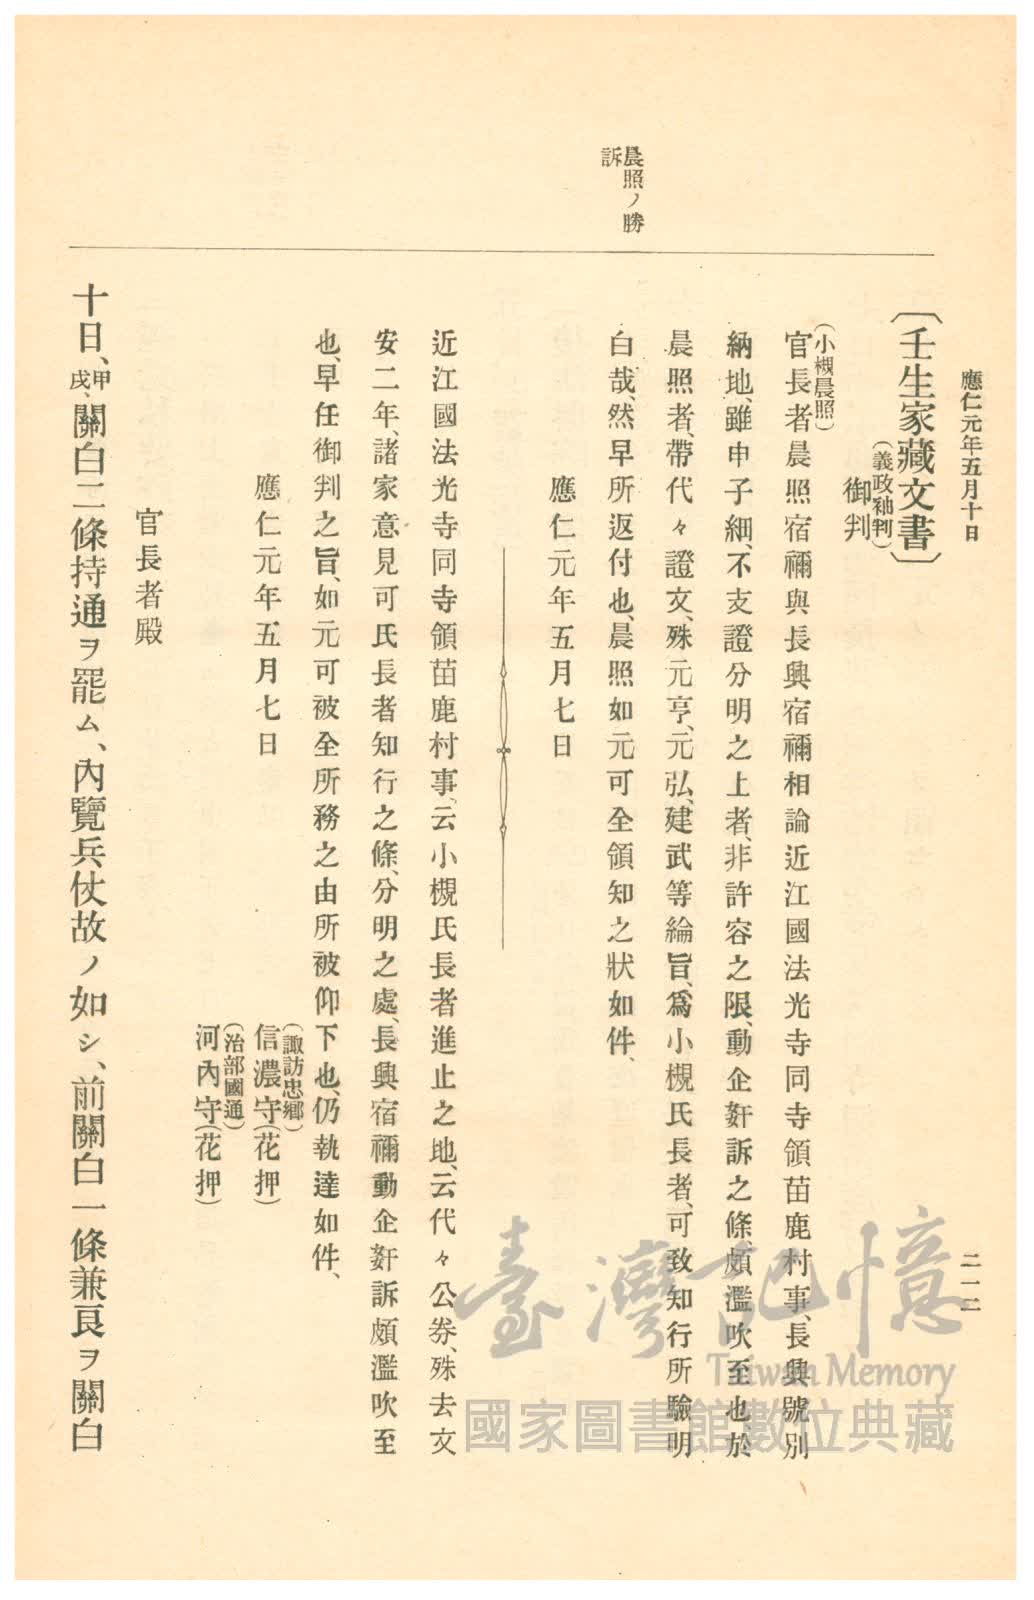 應仁元年五月十日
二一二
晨照ノ勝
訴
〔壬生家藏文書〕
(義政袖判)
御判
(小槻晨照)
官長者晨照宿禰與、長興宿禰相論近江國法光寺同寺領苗鹿村事、長興號別
納地、雖申子細、不支證分明之上者、非許容之限、動企姧訴之條、頗濫吹至也、於
晨照者、帶代々證文、殊元亨、元弘、建武等綸旨、爲小槻氏長者、可致知行所驗明
白哉、然早所返付也、晨照如元可全領知之狀如件、
應仁元年五月七日
近江國法光寺同寺領苗鹿村事、云小槻氏長者進止之地、云代々公券、殊去文
安二年、諸家意見可氏長者知行之條、分明之處、長興宿禰動企姧訴頗濫吹至
也、早任御判之旨、如元可被全所務之由所被仰下也、仍執達如件、
應仁元年五月七日
(諏訪忠鄕)
信濃守(花押)
(治部國通)
河內守(花押)
官長者殿
十日、甲戌、關白二條持通ヲ罷ム、內覽兵仗故ノ如シ、前關白一條兼良ヲ關白
臺灣記憶
Taiwan Memory
國家圖書館數位典藏